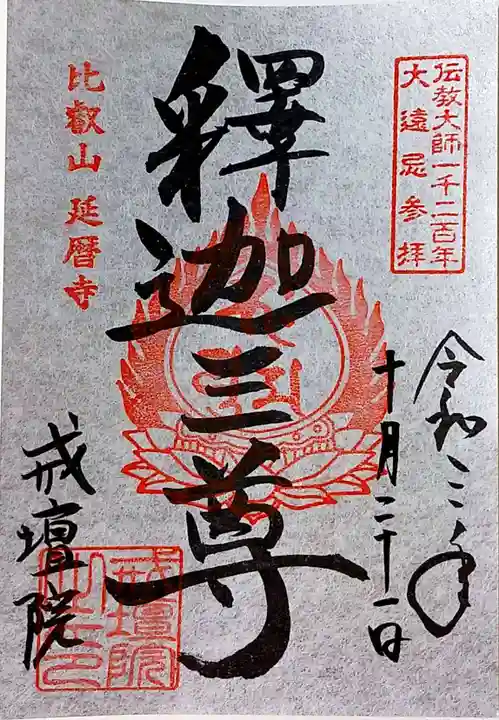 伝教大師一千二百年
大遠忌参拝
令和三年
十月二十一日
釋迦三尊
比叡山 延暦寺
戒壇院
戒壇院